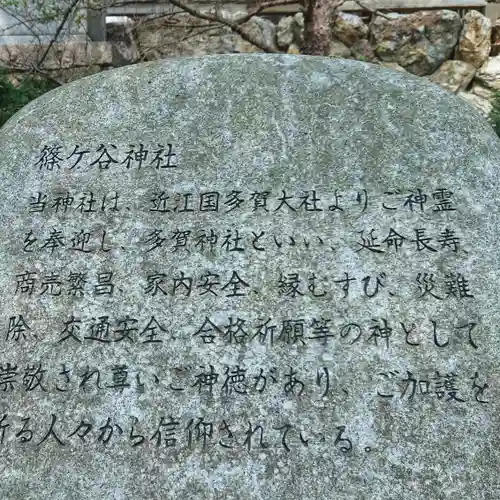 篠ケ谷神社
当神社は、近江国多賀大社よりご神霊
を奉迎し、多賀神社といい、延命長寿、
商売繁昌、家内安全、縁むすび、災難
除、交通安全、合格祈願等の神として
崇敬され尊いご神徳があり、ご加護を
祈る人々から信仰されている。